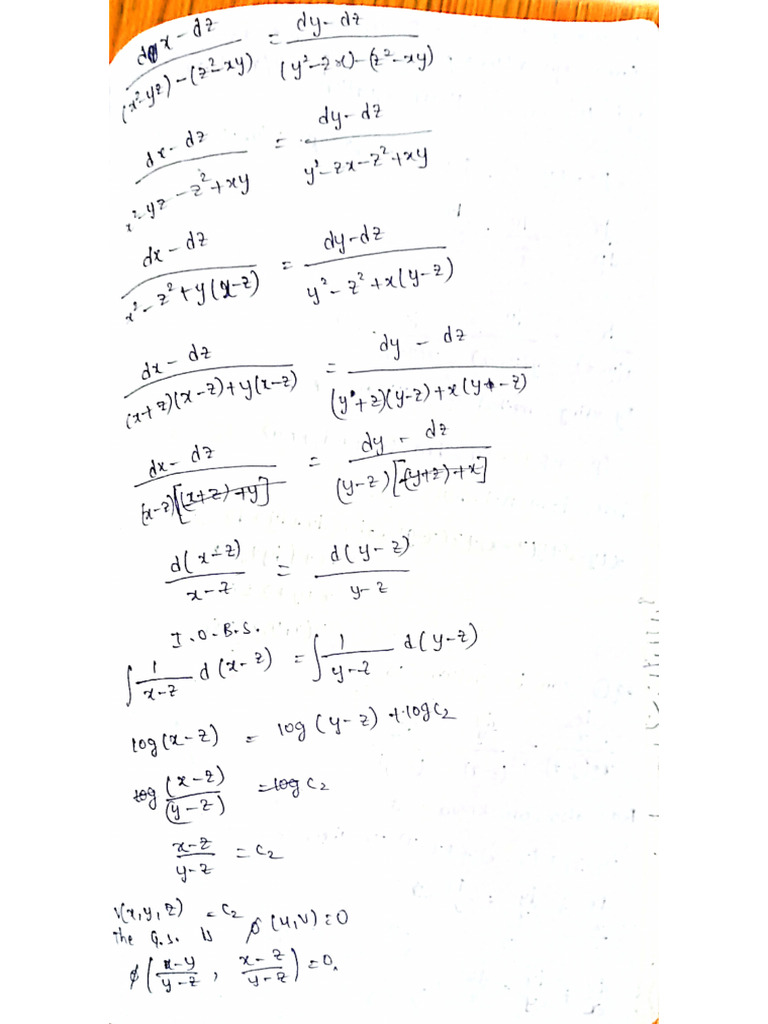 dx - dz / (x²-yz) - (z²-xy) = dy - dz / (y²-zx) - (z²-xy).
dx - dz / x²-yz - z²+xy = dy - dz / y²-zx-z²+xy
dx - dz / x²-z²+y(x-z) = dy-dz / y²-z²+x(y-z)
dx - dz / (x+z)(x-z)+y(x-z) = dy - dz / (y+z)(y-z)+x(y-z)
dx - dz / (x-z)[(x+z)+y] = dy - dz / (y-z)[(y+z)+x]
d(x-z) / x-z = d(y-z) / y-z
I.O.B.S.
∫ 1/x-z d(x-z) = ∫ 1/y-z d(y-z)
log(x-z) = log(y-z) + logc₂
log (x-z)/(y-z) = log c₂
x-z / y-z = c₂
V(x,y,z) = c₂
The G.S. is ϕ(u,v)=0
ϕ( x-y / y-z , x-z / y-z ) = 0.